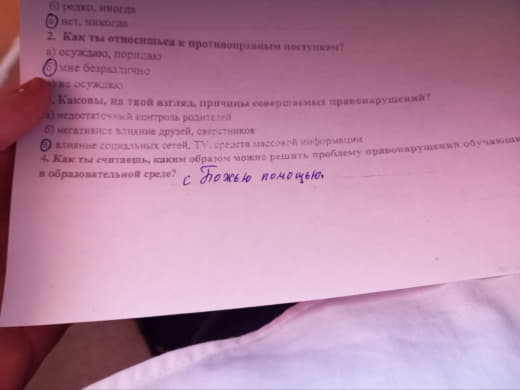 б) редко, иногда
в) нет, никогда
2. Как ты относишься к противоправным поступкам?
а) осуждаю, порицаю
б) мне безразлично
в) не осуждаю
3. Каковы, на твой взгляд, причины совершаемых правонарушений?
а) недостаточный контроль родителей
б) негативное влияние друзей, сверстников
в) влияние социальных сетей, TV, средств массовой информации
4. Как ты считаешь, каким образом можно решить проблему правонарушений обучающих
в образовательной среде? с Божью помощью.